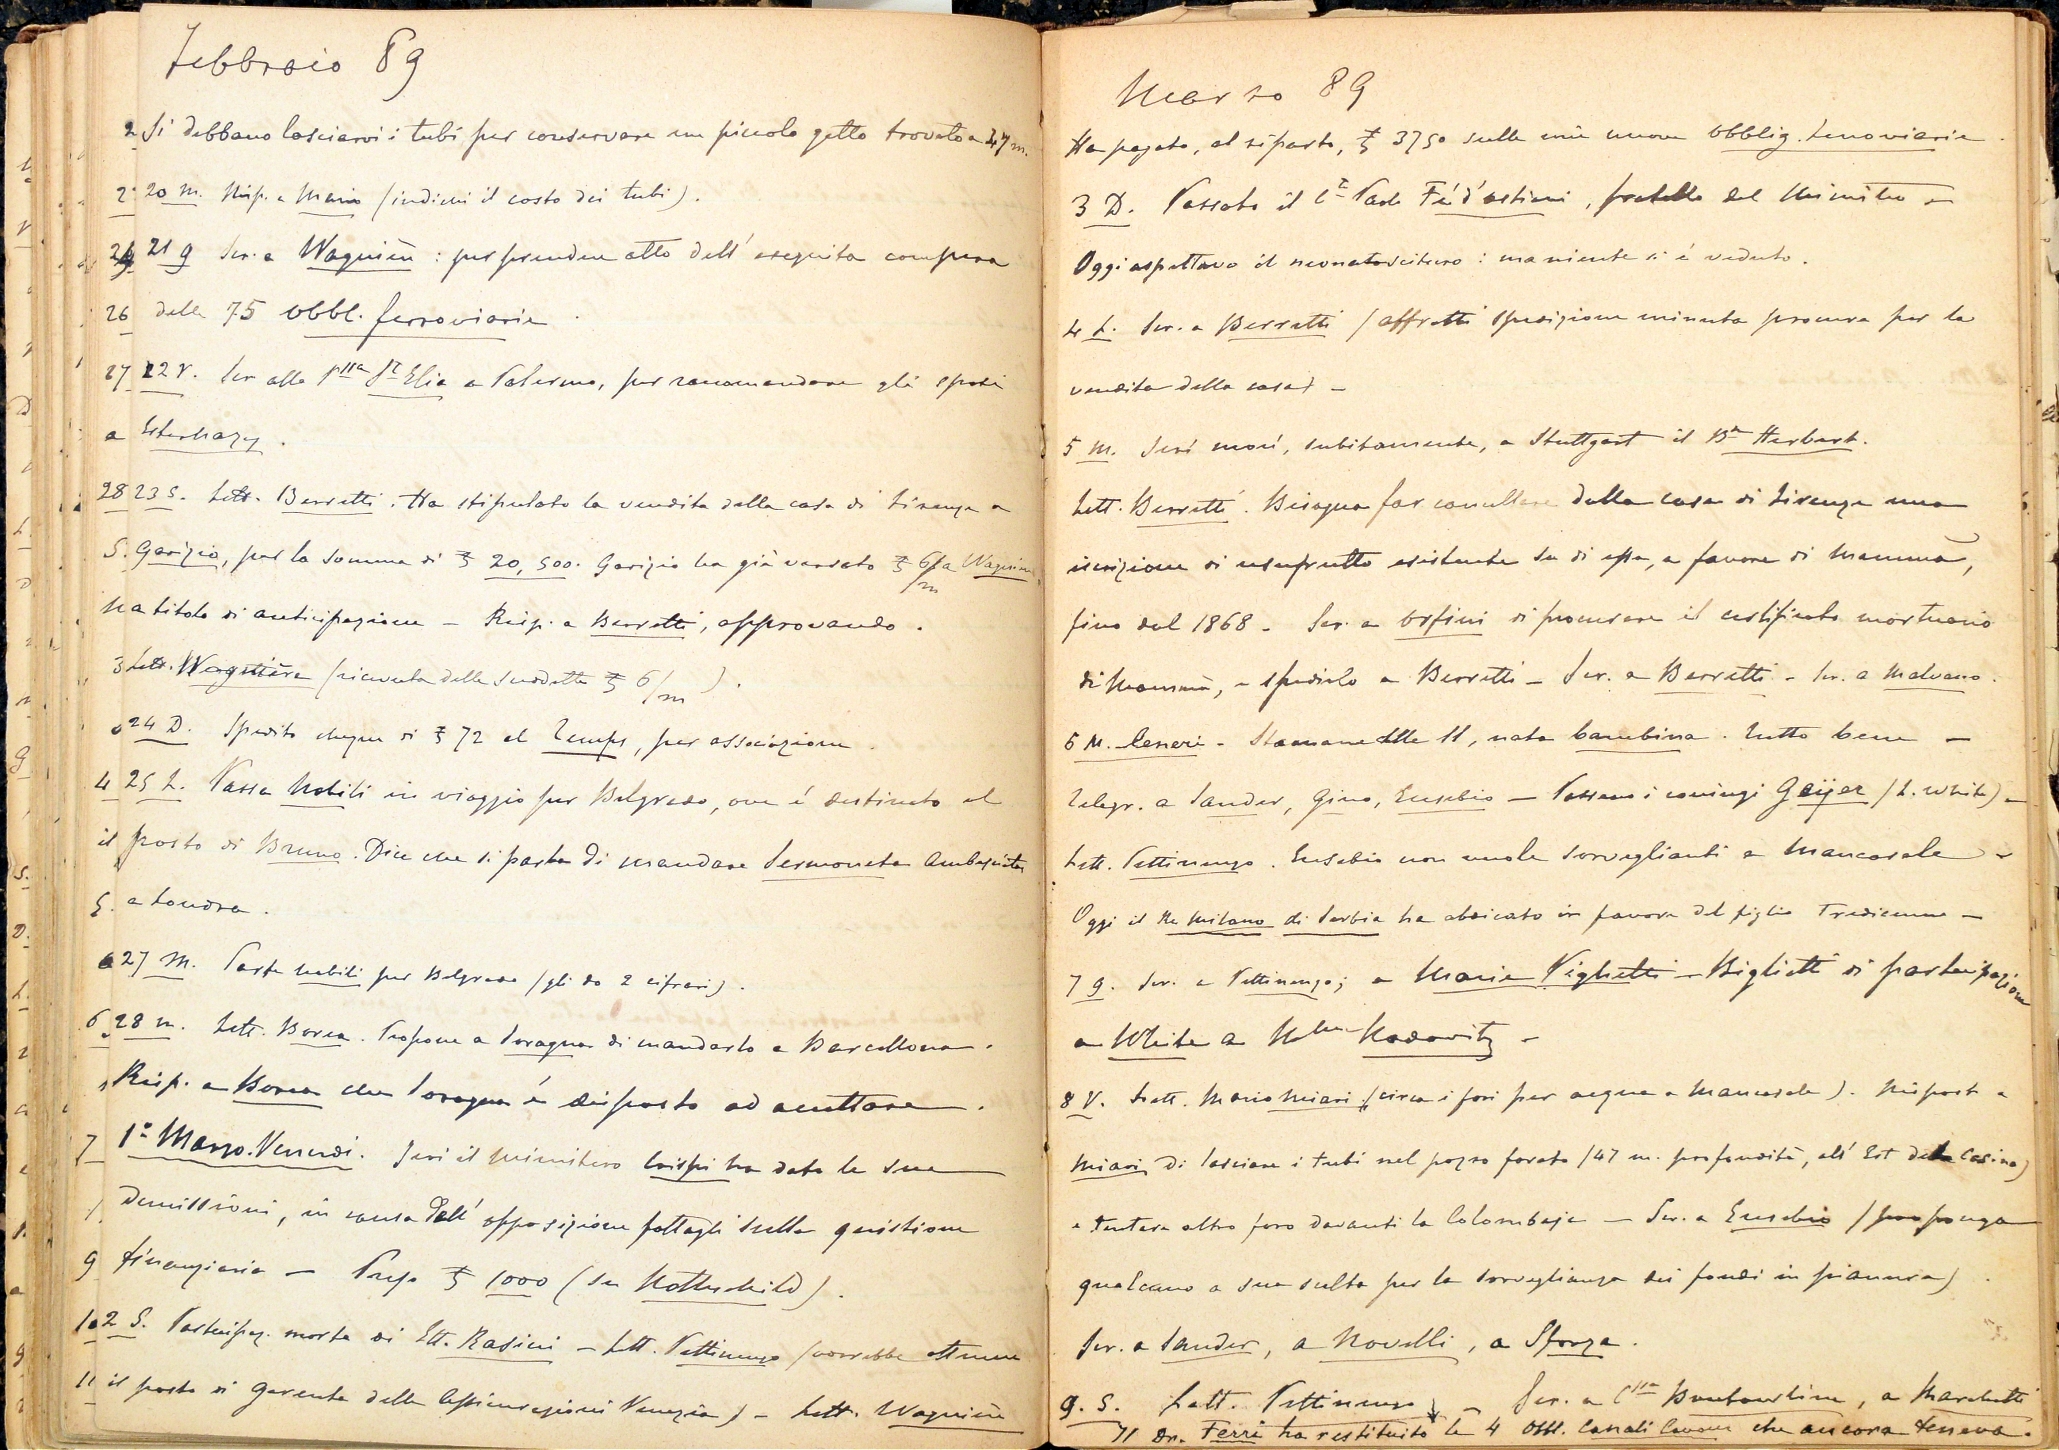 Febbraio 89
Si debbano lasciarvi i tubi per conservare un piccolo getto trovato a 47 m.
20 M. Risp. a Mario (indichi il costo dei tubi).
21 G Scr. a Wagnière : per prendere atto dell' eseguita compera
delle 75 Obbl. ferroviarie.
22 V. Scr alla P.ssa St Elia a Palermo, per raccomandare gli sposi
a Esterhazy.
23 S. Lett. Berretti. Ha stipulato la vendita della casa di Firenze a
S. Garizio, per la somma di ₤ 20,500. Garizio ha già versato ₤ 6/m a Wagnière
a titolo di anticipazione — Risp. a Berretti, approvando.
Lett. Wagnière (ricevuta delle suddette ₤ 6/m).
24 D. Spedito cheque di ₤ 72 al Temps, per associazione.
25 L. Passa Nobili in viaggio per Belgrado, ove é destinato al
il posto di Bruno. Dice che si parla di mandare Sermoneta Ambasciatore
a Londra.
27 M. Parte Nobili per Belgrado (gli do 2 cifrari).
28 M. Lett. Borea. Propone a Soragna di mandarlo a Barcellona.
Risp. a Borea che Soragna é disposto ad accettare.
1° Marzo. Venerdi. Jeri il ministero Crispi ha dato le sue
demissioni, in causa dell' opposizione fattagli sulla quistione
finanziaria — Preso ₤ 1000 (su Rothschild).
2 S. Partecipaz. morte di Ett. Rasini — Lett. Pettinengo (vorrebbe ottenere
il posto di Gerente delle Assicurazioni Venezia) — Lett. Wagnière
Marzo 89
Ha pagato, al riparto, ₤ 3750 sulle mie nuove Obblig. ferroviarie.
3 D. Passato il Cte Paolo Fé d'Ostiani, fratello del Ministro —
Oggi aspettavo il neonato : ma niente si é veduto.
4 L. Scr. a Berretti (affretti spedizione minuta procura per la
vendita della casa) —
5 M. Jeri morí, subitamente, a Stuttgart il Bn Herbert.
Lett. Berretti. Bisogna far cancellare dalla casa di Firenze una
iscrizione di usufrutto esistente su di essa, a favore di Mammà,
fino dal 1868 — Scr. a Orfini di procurare il certificato mortuario
di Mammà, e spedirlo a Berretti — Scr. a Berretti — Scr. a Malvano.
6 M. Ceneri — Stamane alle 11, nata bambina. Tutto bene —
Telegr. a Sander, Gino, Eusebio — Passano i coniugi Geijer (L. White) —
Lett. Pettinengo. Eusebio non vuole sorveglianti a Mancasale —
Oggi il Re Milano di Serbia ha abdicato in favore del figlio Tredicenne —
7 G. Scr. a Pettinengo; a Maria Vighetti — Biglietti di partecipazione
a White a Mme Kadowitz —
8 V. Lett. Mario Miari (circa i fori per acqua a Mancasale). Rispost a
Miari, di lasciare i tubi nel pozzo forato (47 m. profondità, all' Est della Casina)
e tentare altro foro davanti la Colombaja — Scr. a Eusebio (proponga
qualcuno a sua scelta per la sorveglianza dei fondi in pianura).
Scr. a Sander, a Novelli, a Sforza.
9. S. Lett. Pettinengo — Scr. a Cssa, a Marchetti
Il Dr. Ferri ha restituito le 4 Obbl. Canali Cavour che ancora teneva.